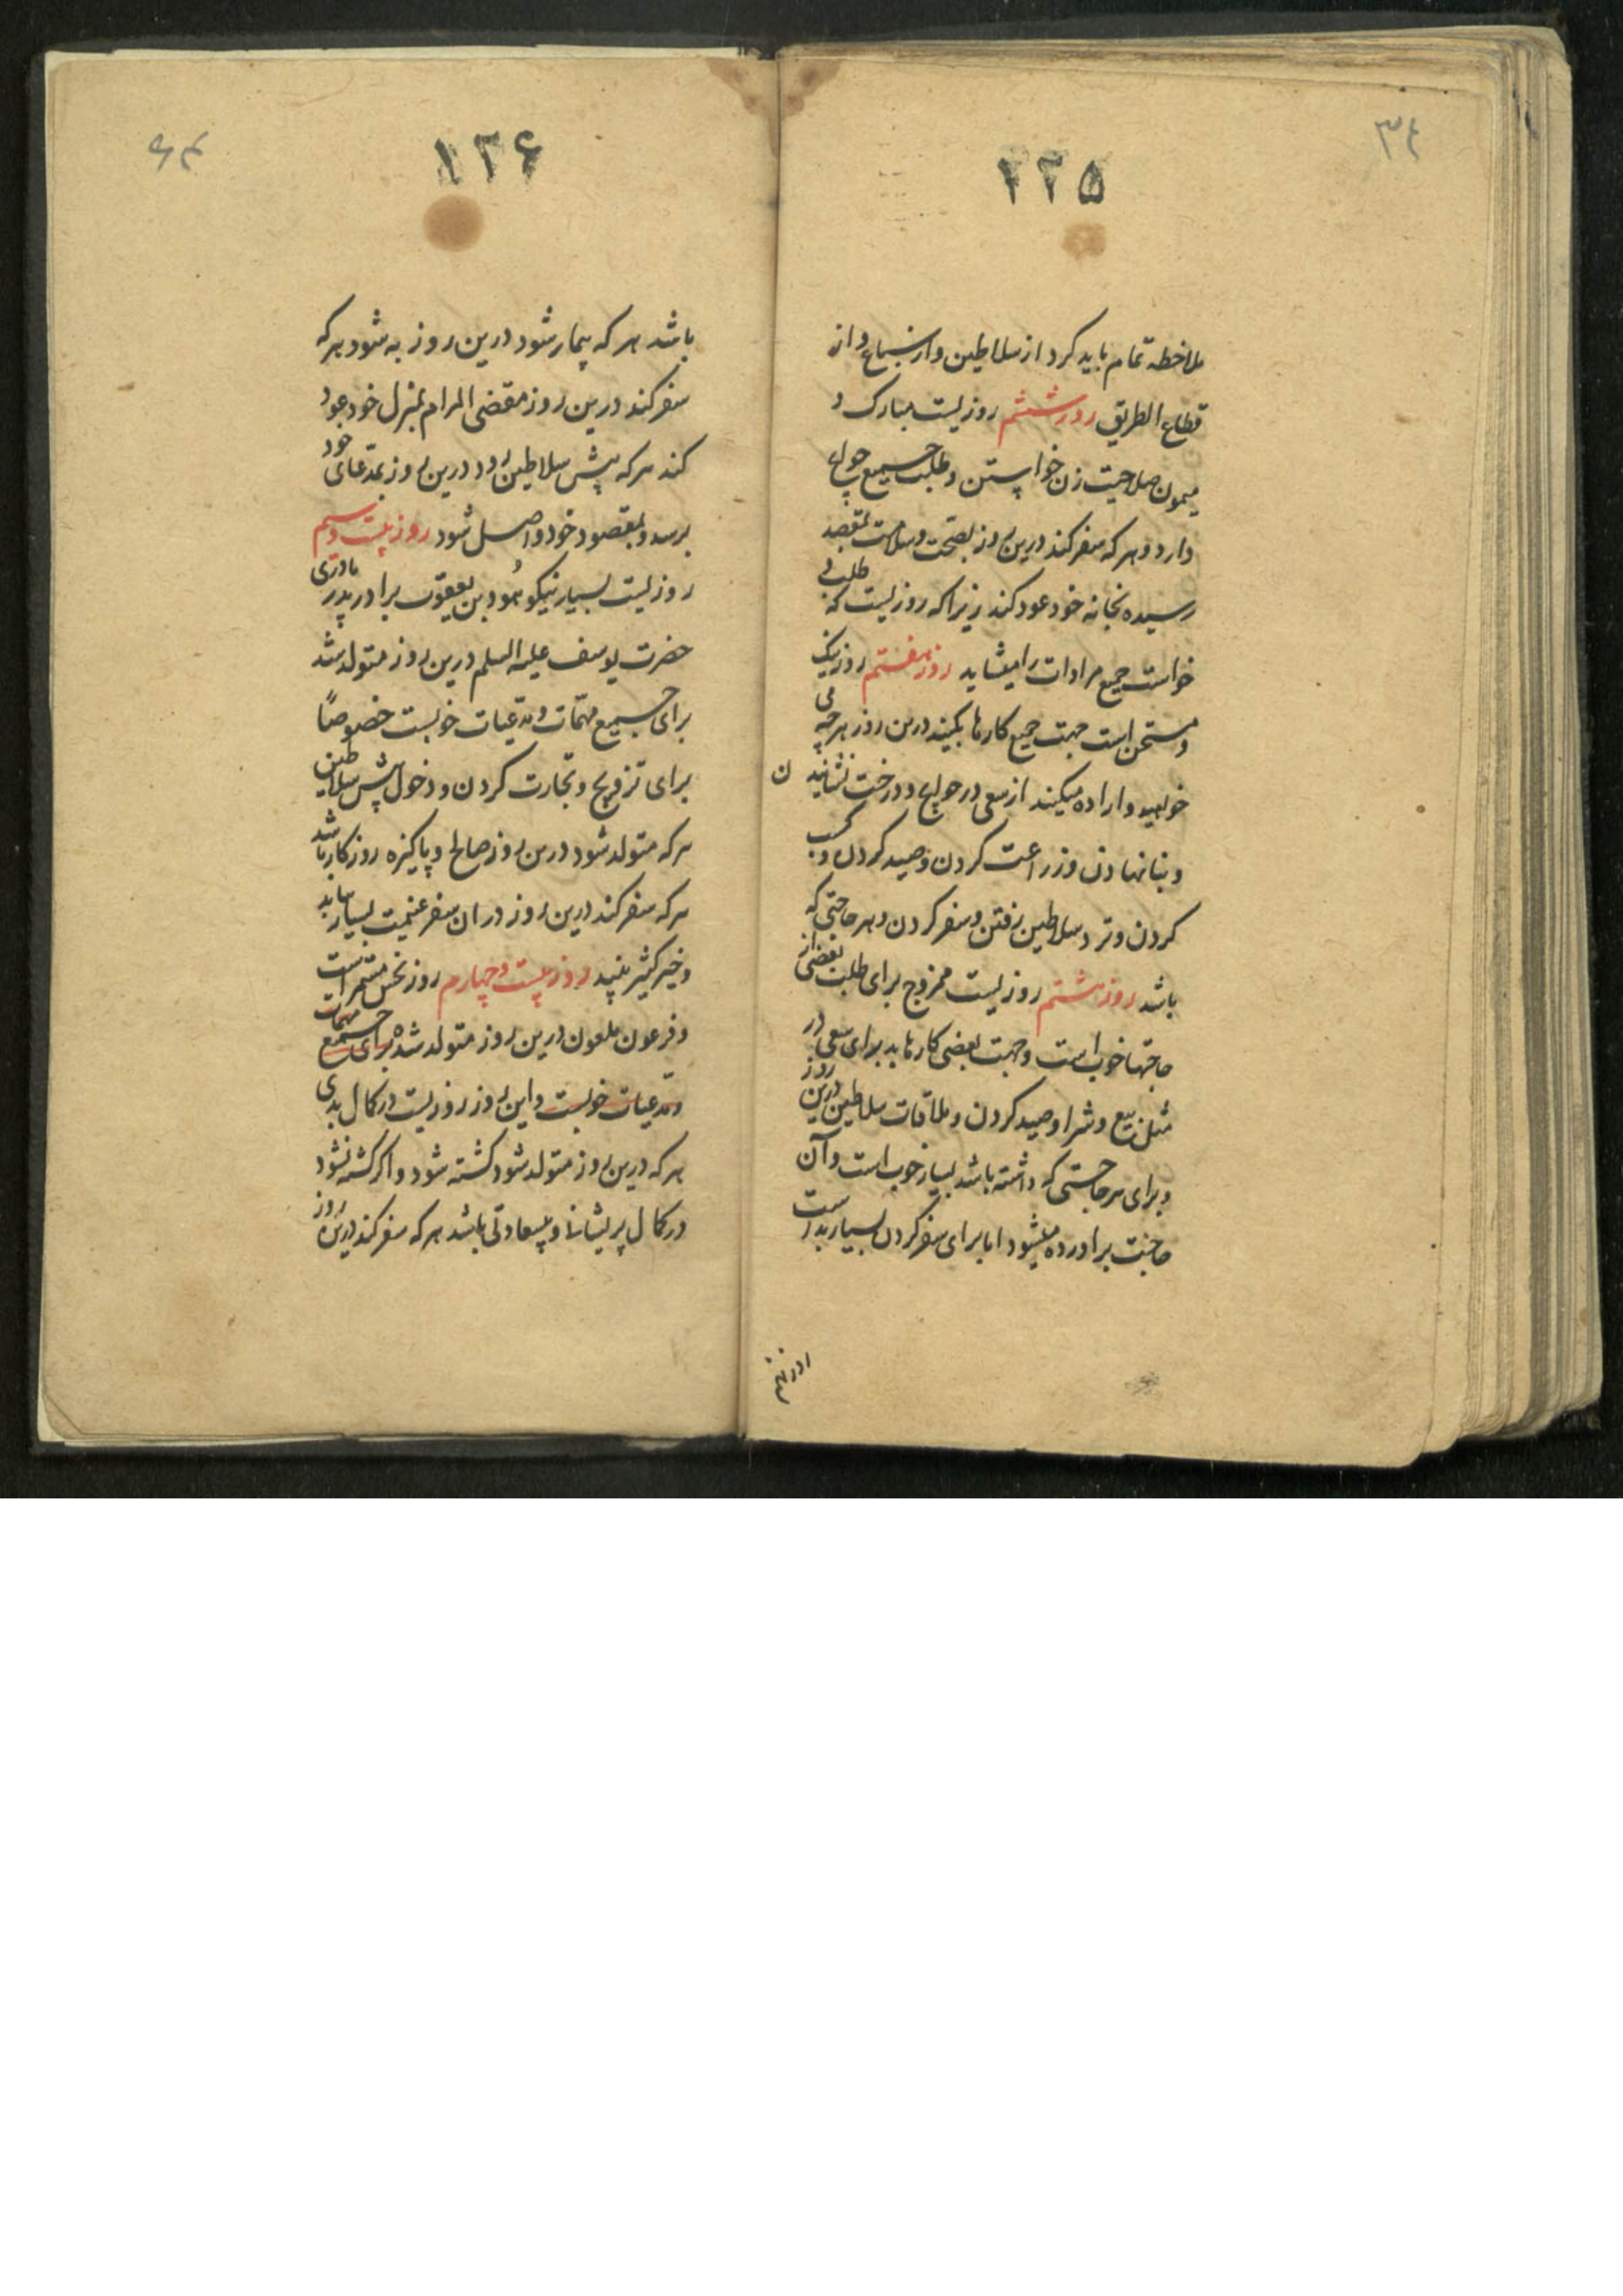 ۳۴
۲۲۵
ملاحظه تمام باید کرد از سلاطین و از سباع و از
قطاع الطریق روز ششم روزیست مبارک و
میمون صلاحیت زن خواستن و طلب جمیع حوایج
دارد و هر که سفر کند درین روز بصحت و سلامت بمقصد
رسیده بخانه خود عود کند زیرا که روزیست که طلب و
خواست جمیع مرادات را میشاید روز هفتم روز نیک
و مستحسن است جهت جمیع کارها بکنید درین روز هر چه می
خواهید و اراده میکنید از سعی در حوایج و درخت نشانیدن
و بنا نهادن و زراعت کردن و صید کردن و کسب
کردن و نزد سلاطین رفتن و سفر کردن و هر حاجتی که
باشد روز هشتم روزیست ممزوج برای طلب بعضی از
حاجتها خوب است و جهت بعضی کارها بد برای سعی در
مثل بیع و شرا و صید کردن و ملاقات سلاطین درین روز
و برای هر حاجتی که داشته باشد بسیار خوب است و آن
حاجت براورده میشود اما برای سفر کردن بسیار بد است
۱۲۶
باشد هر که بیمار شود درین روز به شود هر که
سفر کند درین روز مقضی المرام بمنزل خود عود
کند هر که پیش سلاطین رود درین روز بمدعای خود
برسد و بمقصود خود واصل شود روز بیست و سیم
روزیست بسیار نیکو یهود بن یعقوب برادر پدر مادری
حضرت یوسف علیه السلم درین روز متولد شد
برای جمیع مهمات و مدعیات خوبست خصوصاً
برای تزویج و تجارت کردن و دخول پیش سلاطین
هر که متولد شود درین روز صالح و پاکیزه روزکار باشد
هر که سفر کند درین روز در ان سفر غنیمت بسیار بیابد
و خیر کثیر بیند روز بیست و چهارم روز نحس مستمر است
و فرعون ملعون درین روز متولد شده برای جمیع مهمات
و مدعیات خوبست و این روز روزیست در کمال بدی
هر که درین روز متولد شود کشته شود و اکر کشته نشود
در کمال پریشانی و بیسعادتی باشد هر که سفر کند درین روز